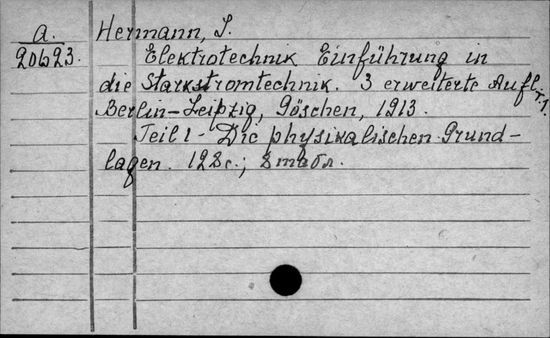 a. Hermann, I.
20623. Elektrotechnik Einführung in
die Starkstromtechnik. 3 erweiterte Aufl. T.1.
Berlin-Leipzig, Göschen, 1913.
Teil 1 - Die physikalischen Grund-
lagen. 128 с.; 8 табл.